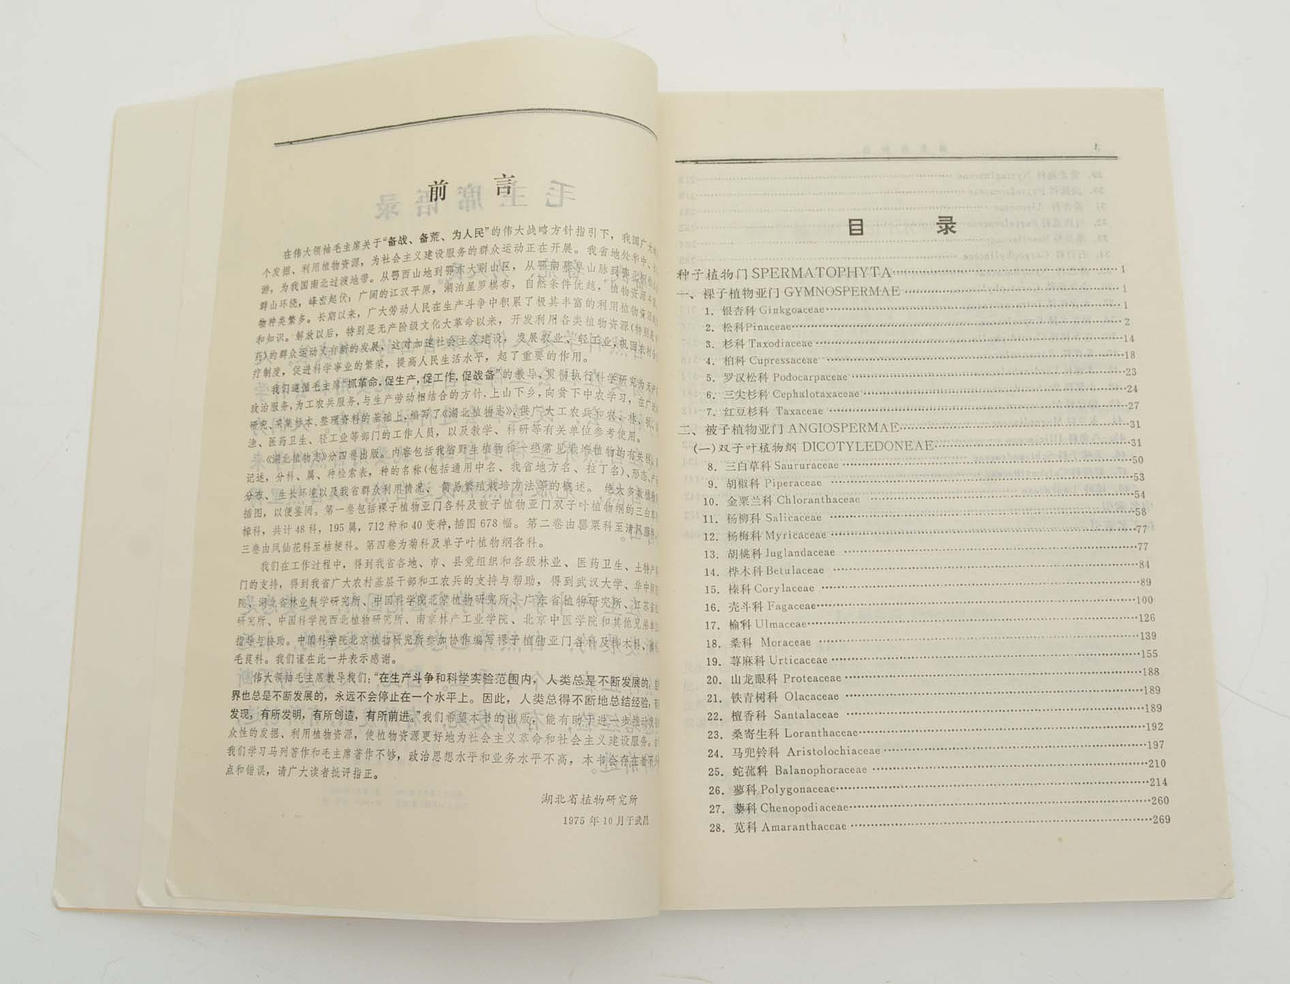 前言
在伟大领袖毛主席关于“备战、备荒、为人民”的伟大战略方针指引下，我国广大
个发掘、利用植物资源，为社会主义建设服务的群众运动正在开展。我省地处华中，
游，为我国南北过渡地带。从鄂西山地到鄂东大别山区，从鄂南
群山环绕，峰峦起伏；广阔的江汉平原，湖泊星罗棋布，自然条件优越，植物资源丰
物种类繁多。长期以来，广大劳动人民在生产斗争中积累了极其丰富的利用植物资源
和知识。解放以后，特别是无产阶级文化大革命以来，开发利用各类植物资源(特别是
药)的群众运动又有新的发展，这对加速社会主义建设，发展农业、轻工业，巩固农村合
疗制度，促进科学事业的繁荣，提高人民生活水平，起了重要的作用。
我们遵循毛主席“抓革命，促生产，促工作，促战备”的教导，贯彻执行科学研究为无产
政治服务，为工农兵服务，与生产劳动相结合的方针，上山下乡，向贫下中农学习，在广泛
研究、采集标本、整理资料的基础上，编写了《湖北植物志》，供广大工农兵和农、林、牧、
渔、医药卫生、轻工业等部门的工作人员，以及教学、科研等有关单位参考使用。
《湖北植物志》分四卷出版。内容包括我省野生植物和一些常见栽培植物的有关科、
记述，分科、属、种检索表，种的名称(包括通用中名、我省地方名、拉丁名)、形态、产
分布、生长环境以及我省群众利用情况、简易繁殖栽培方法等的概述。绝大多数植物
插图，以便鉴别。第一卷包括裸子植物亚门各科及被子植物亚门双子叶植物纲的三白草
樟科，共计48科，195属，712种和40变种，插图678幅。第二卷由罂粟科至清风藤
三卷由凤仙花科至桔梗科。第四卷为菊科及单子叶植物纲各科。
我们在工作过程中，得到我省各地、市、县党组织和各级林业、医药卫生、土特产
门的支持，得到我省广大农村基层干部和工农兵的支持与帮助，得到武汉大学、华中师
院、湖北省林业科学研究所、中国科学院北京植物研究所、广东省植物研究所、江苏省
研究所、中国科学院西北植物研究所、南京林产工业学院、北京中医学院和其他兄弟单
指导与协助。中国科学院北京植物研究所参加协作编写裸子植物亚门各科及
毛茛科。我们谨在此一并表示感谢。
伟大领袖毛主席教导我们：“在生产斗争和科学实验范围内，人类总是不断发展的，自
界也总是不断发展的，永远不会停止在一个水平上。因此，人类总得不断地总结经验，有
发现，有所发明，有所创造，有所前进。”我们希望本书的出版，能有助于进一步推动
众性的发掘、利用植物资源，使植物资源更好地为社会主义革命和社会主义建设服务。
我们学习马列著作和毛主席著作不够，政治思想水平和业务水平不高，本书会存在着不少
点和错误，请广大读者批评指正。
湖北省植物研究所
1975年10月于武昌
目录
种子植物门 SPERMATOPHYTA 1
一、裸子植物亚门 GYMNOSPERMAE 1
1. 银杏科 Ginkgoaceae 1
2. 松科 Pinaceae 2
3. 杉科 Taxodiaceae 14
4. 柏科 Cupressaceae 18
5. 罗汉松科 Podocarpaceae 23
6. 三尖杉科 Cephalotaxaceae 24
7. 红豆杉科 Taxaceae 27
二、被子植物亚门 ANGIOSPERMAE 31
(一)双子叶植物纲 DICOTYLEDONEAE 31
8. 三白草科 Saururaceae 50
9. 胡椒科 Piperaceae 53
10. 金粟兰科 Chloranthaceae 54
11. 杨柳科 Salicaceae 58
12. 杨梅科 Myricaceae 77
13. 胡桃科 Juglandaceae 77
14. 桦木科 Betulaceae 84
15. 榛科 Corylaceae 89
16. 壳斗科 Fagaceae 100
17. 榆科 Ulmaceae 126
18. 桑科 Moraceae 139
19. 荨麻科 Urticaceae 155
20. 山龙眼科 Proteaceae 188
21. 铁青树科 Olacaceae 189
22. 檀香科 Santalaceae 189
23. 桑寄生科 Loranthaceae 192
24. 马兜铃科 Aristolochiaceae 197
25. 蛇菰科 Balanophoraceae 210
26. 蓼科 Polygonaceae 214
27. 藜科 Chenopodiaceae 260
28. 苋科 Amaranthaceae 269